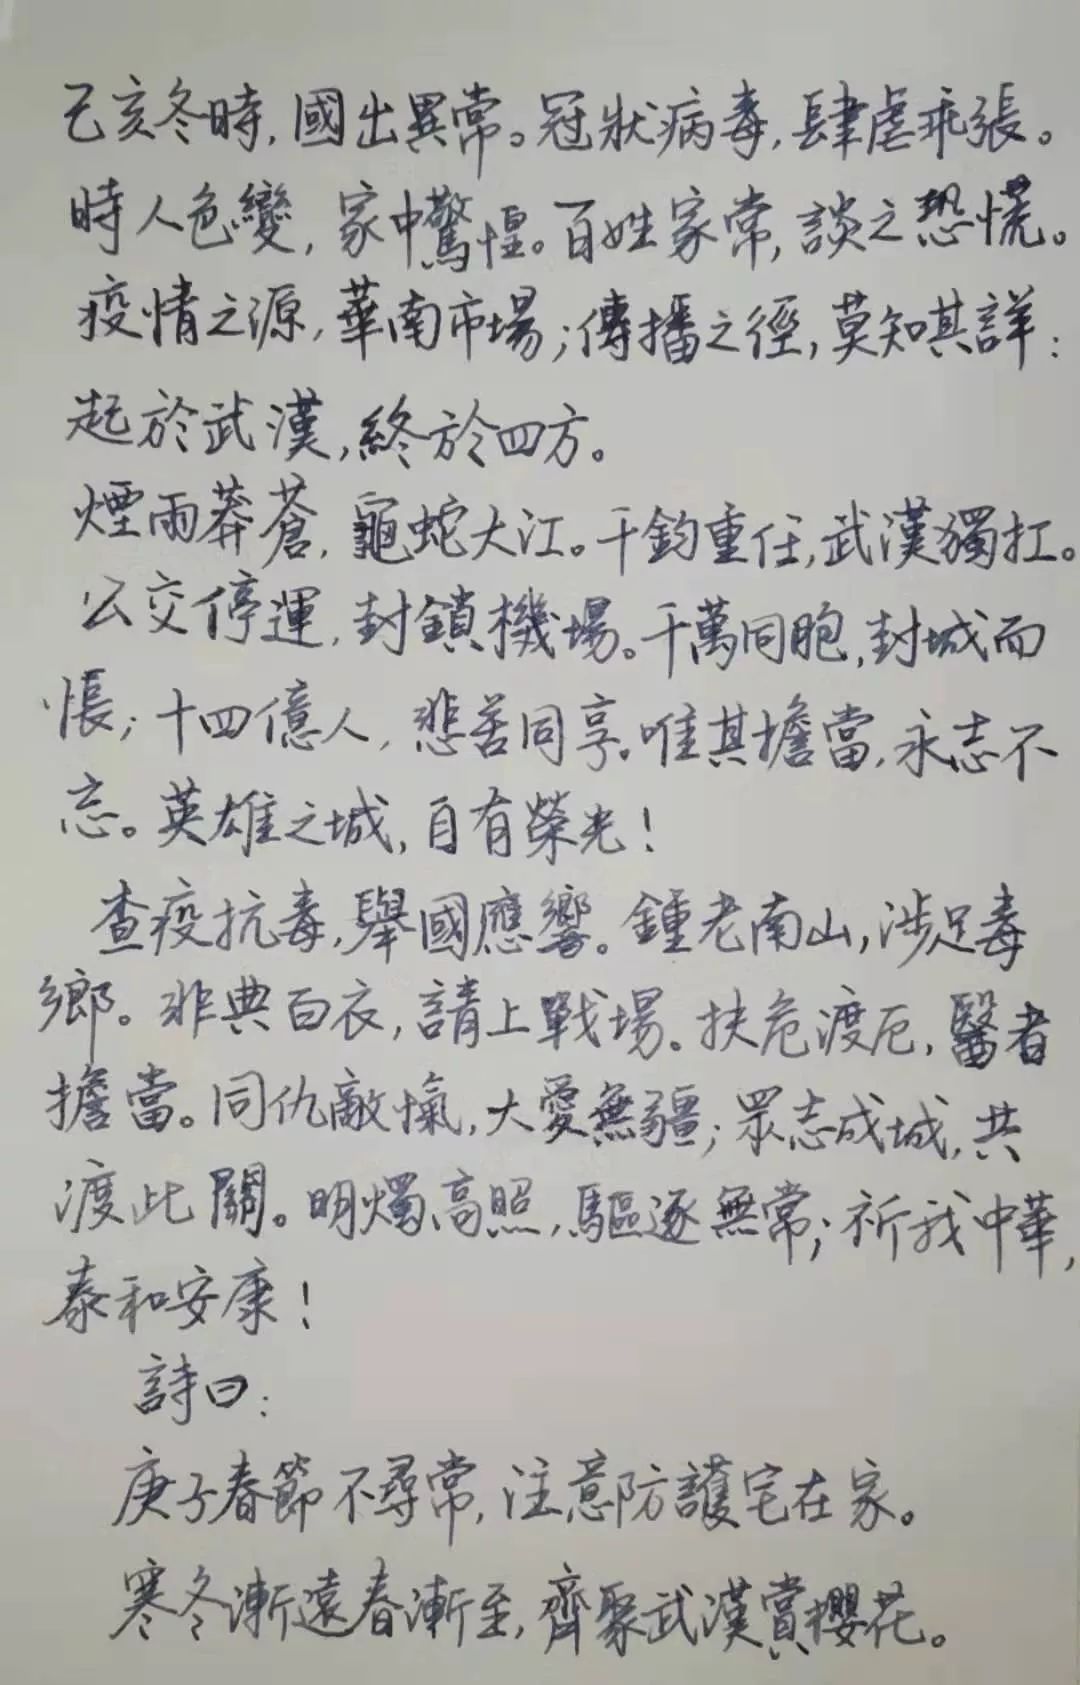 己亥冬時,國出異常。冠狀病毒,肆虐乖張。
時人色變,家中驚惶。百姓家常,談之恐慌。
疫情之源,華南市場;傳播之徑,莫知其詳:
起於武漢,終於四方。
煙雨莽蒼,龜蛇大江。千鈞重任,武漢獨扛。
公交停運,封鎖機場。千萬同胞,封城而
悵;十四億人,悲苦同享。唯其擔當,永志不
忘。英雄之城,自有榮光!
查疫抗毒,舉國應響。鍾老南山,涉足毒
鄉。非典白衣,請上戰場。扶危渡厄,醫者
擔當。同仇敵愾,大愛無疆;眾志成城,共
渡此關。明燭高照,驅逐無常;祈我中華,
泰和安康!
詩曰:
庚子春節不尋常,注意防護宅在家。
寒冬漸遠春漸至,齊聚武漢賞櫻花。